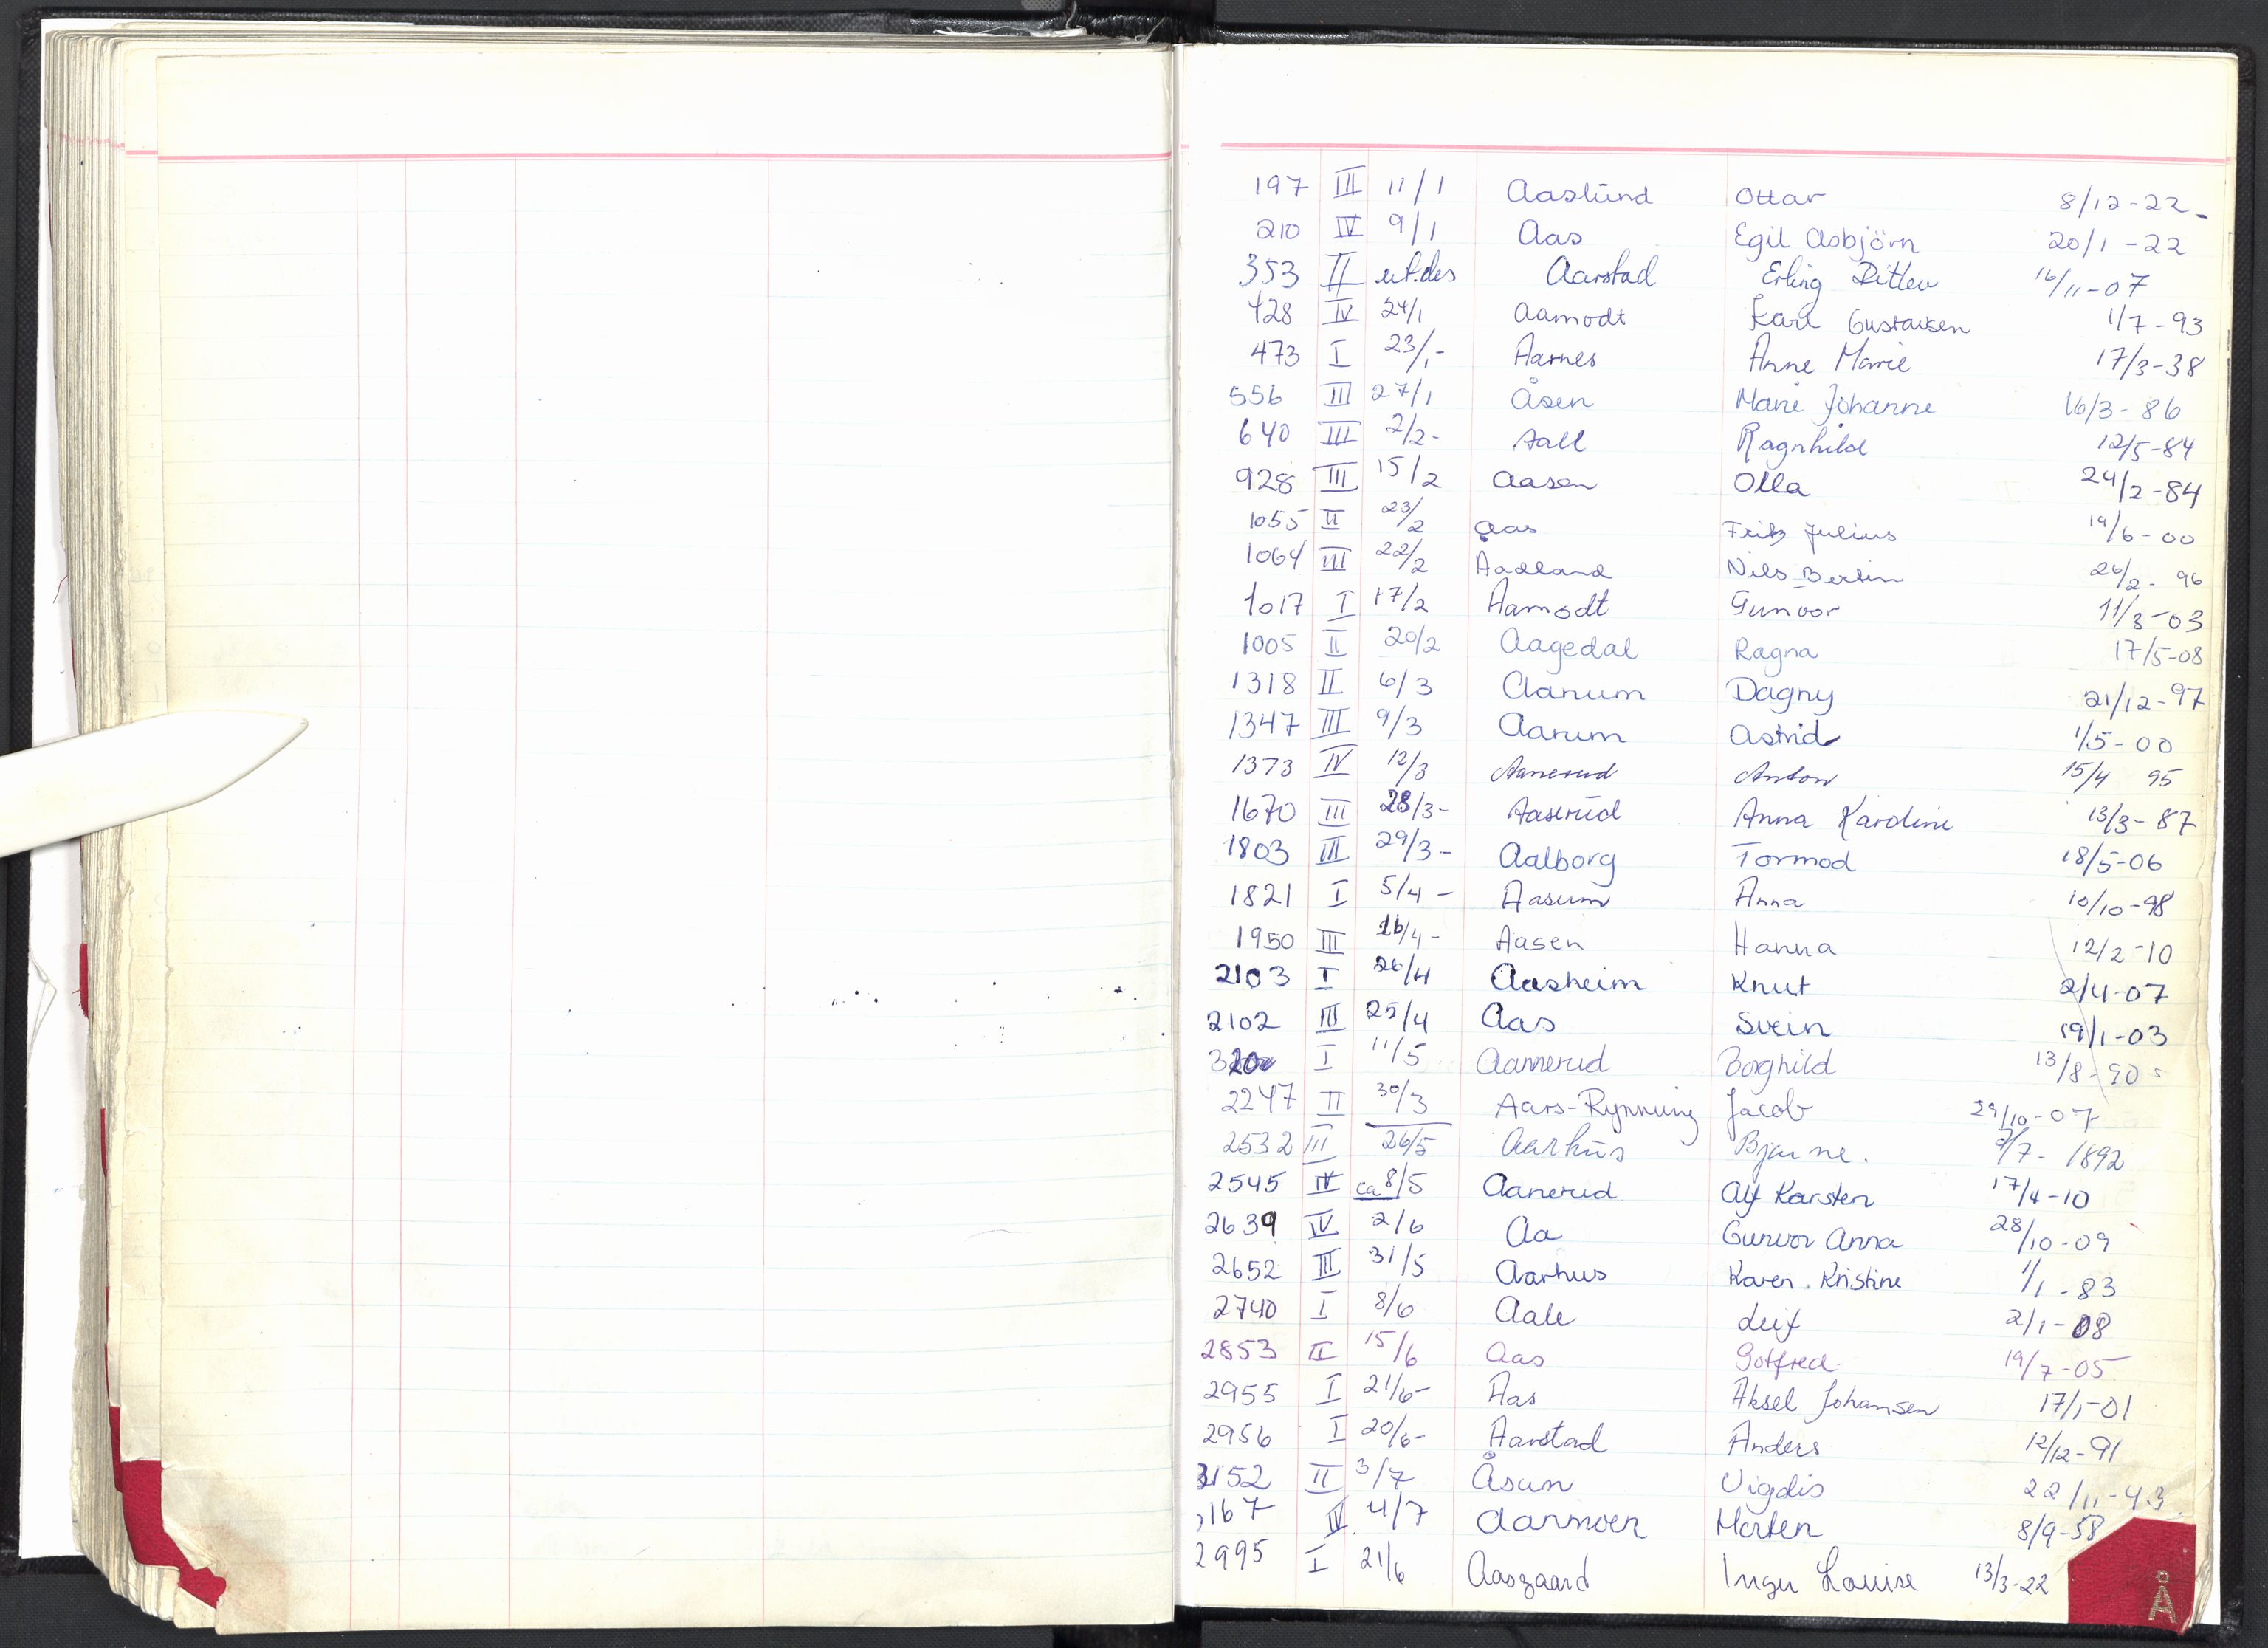 197 III 11/1 Aaslund Ottar 8/12-22-
210 IV 9/1 Aas Egil Asbjörn 20/1-22
353 II ut.des Aarstad Erling Ditlev 16/11-07
428 IV 24/1 Aamodt Karl Gustavsen 1/7-93
473 I 23/1- Aarnes Anne Marie 17/3-38
556 III 27/1 Åsen Marie Johanne 16/3-86
640 III 2/2- Aall Ragnhild 12/5-84
928 III 15/2 Aasen Olla 24/2-84
1055 II 23/2 Aas Fritz Julius 19/6-00
1064 III 22/2 Aadland Nils Bertin 26/2-96
1017 I 17/2 Aamodt Gunvor 11/3-03
1005 II 20/2 Aagedal Ragna 17/5-08
1318 II 6/3 Aanum Dagny 21/12-97
1347 III 9/3 Aarum Astrid 1/5-00
1373 IV 12/3 Aanerud Anton 15/4 95
1670 III 28/3- Aaserud Anna Karoline 13/3-87
1803 III 29/3- Aalborg Tormod 18/5-06
1821 I 5/4- Aasum Anna 10/10-98
1950 III 16/4- Aasen Hanna 12/2-10
2103 I 26/4 Aasheim Knut 2/4-07
2102 III 25/4 Aas Svein 19/1-03
I 11/5 Aannerud Borghild 13/8-90
2247 II 30/3 Aars-Rynning Jacob 29/10-07
2532 III 26/5 Aarhus Bjarne. /7-1892
2545 IV ca 8/5 Aanerud Alf Karsten 17/4-10
2639 IV 2/6 Aa Gunvor Anna 28/10-09
2652 III 31/5 Aarhus Karen Kristine 1/1-83
2740 I 8/6 Aale Leif 2/1-08
2853 II 15/6 Aas Gotfred 19/7-05
2955 I 21/6- Aas Aksel Johansen 17/1-01
2956 I 20/6- Aarstad Anders 12/12-91
3152 II 3/7 Åsun Vigdis 22/11-43
167 IV 4/7 Aarmoen Morten 8/9-58
2995 I 21/6 Aasgaard Inger Louise 13/3-22
Å